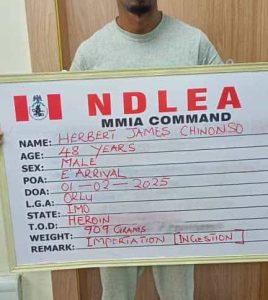 NDLEA
MMIA COMMAND
NAME: HERBERT JAMES CHINONSO
AGE: 48 YEARS
SEX: MALE
POA: E ARRIVAL
DOA: 01-02-2025
L.G.A: ORLU
STATE: IMO
T.O.D: HEROIN
WEIGHT: 909 GRAMS
REMARK: IMPORTATION [INGESTION]